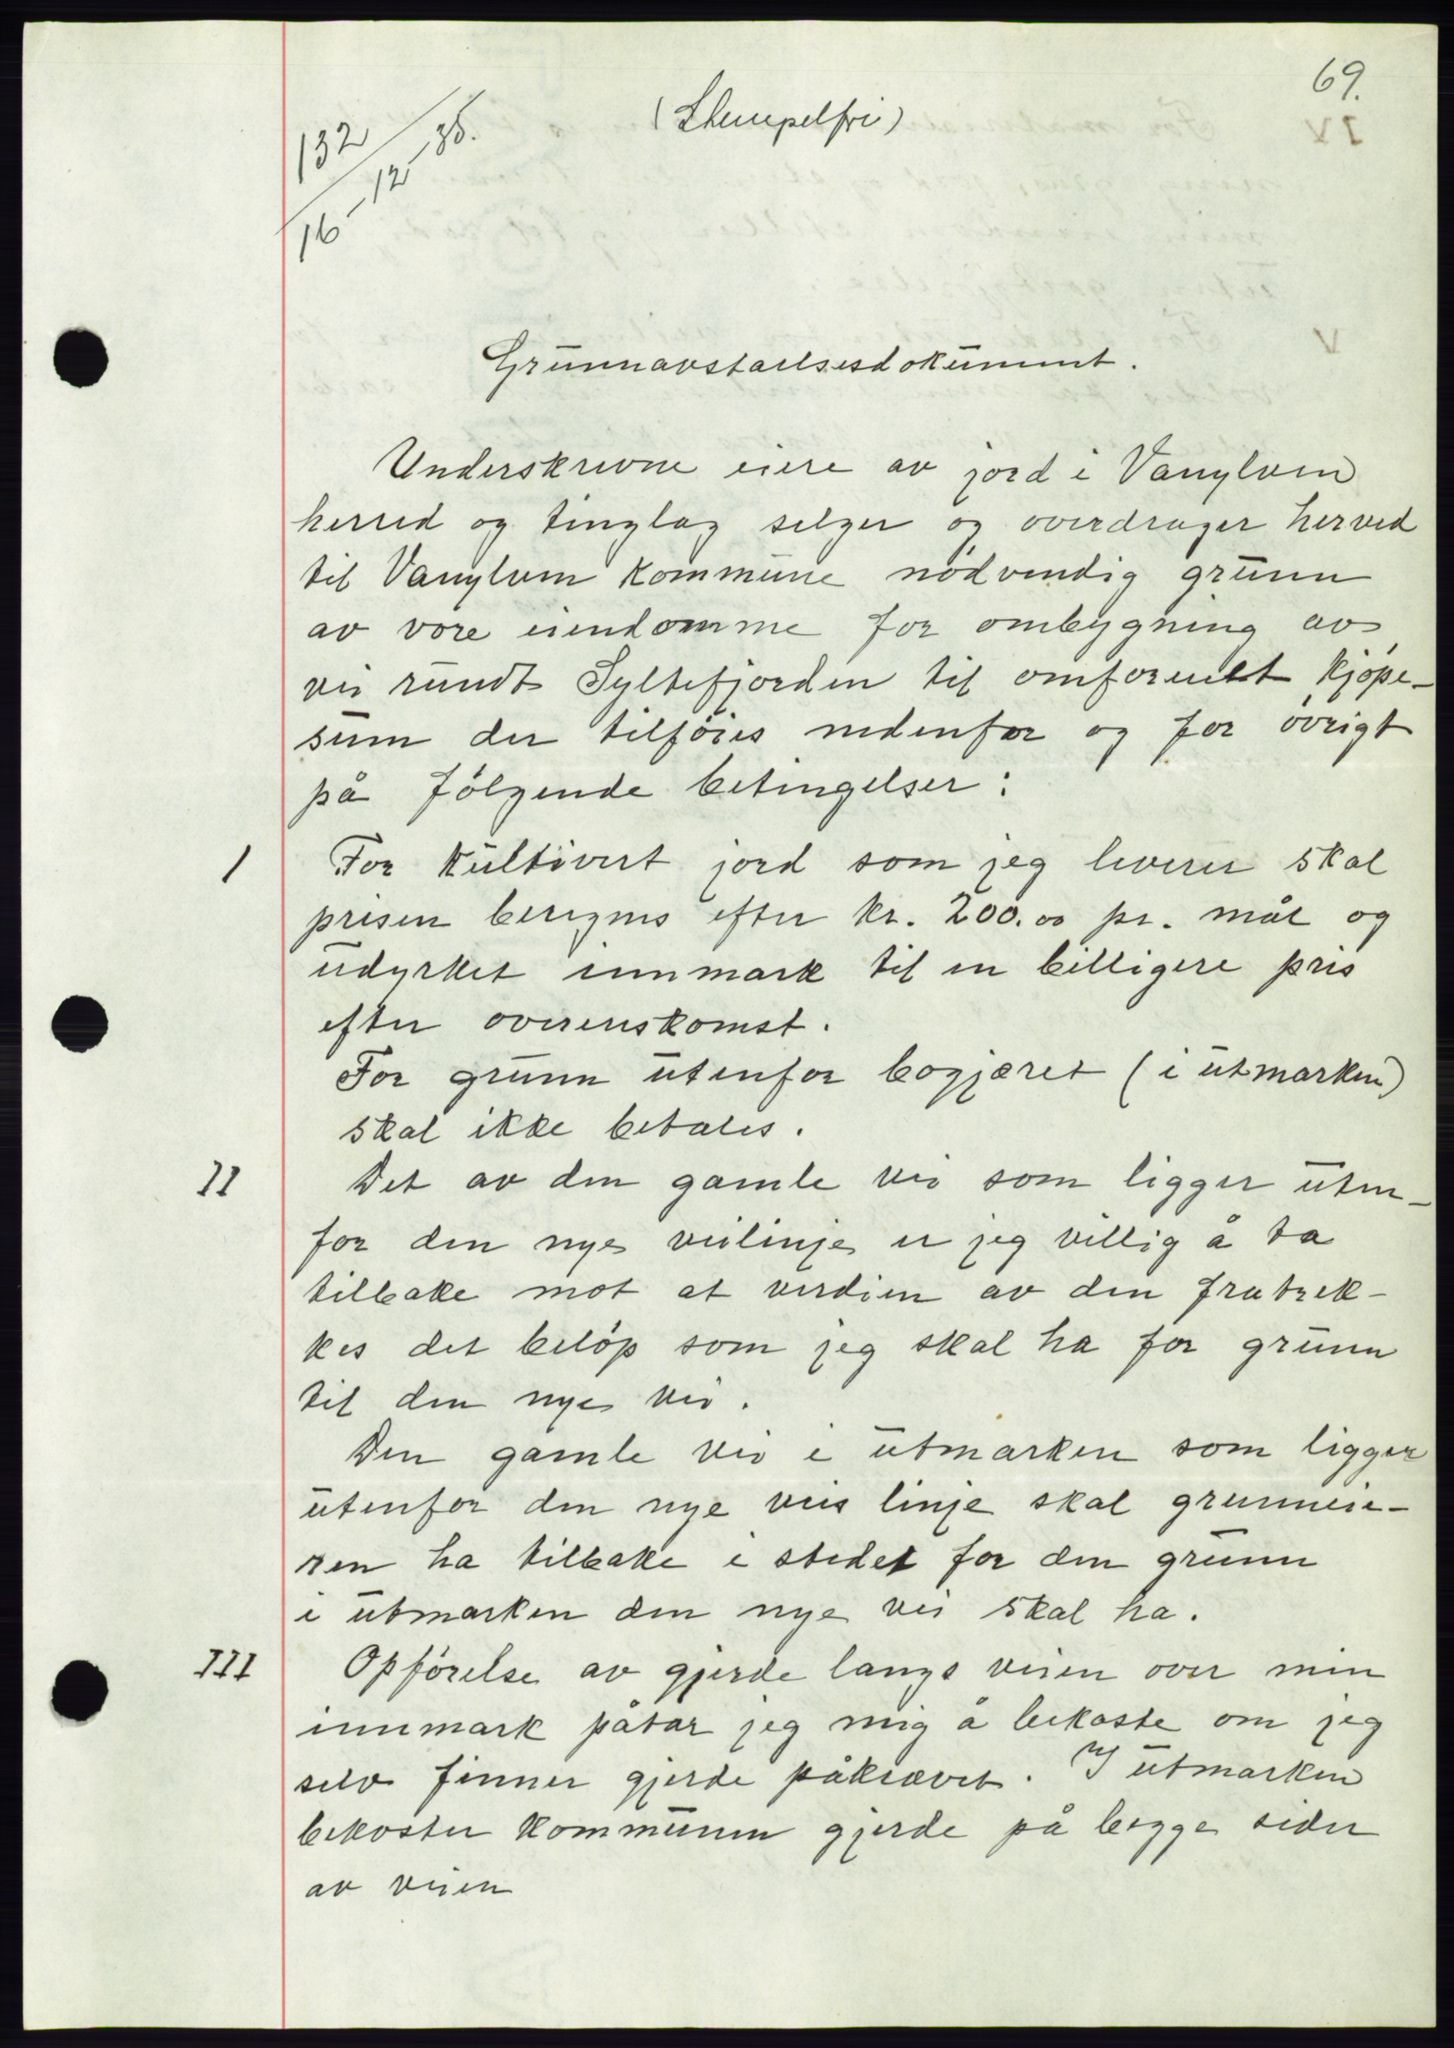 69.
(Stempelfri)
132
16-12-38.
Grunnavståelsesdokument.
Underskrevne eiere av jord i Vanylven
herred og tinglag selger og overdrager herved
til Vanylven kommune nödvendig grunn
av vore eiendomme for ombygning av
vei rundt Syltefjorden til omforenet kjöpe-
sum der tilföies nedenfor og for övrigt
på fölgende betingelser:
I For kultivert jord som jeg leverer skal
prisen beregnes efter kr. 200.00 pr. mål og
udyrket innmark til en billigere pris
efter overenskomst.
For grunn utenfor bögjæret (i utmarken)
skal ikke betales.
II Det av den gamle vei som ligger uten-
for den nye veilinje er jeg villig å ta
tilbake mot at verdien av den fratrek-
kes det belöp som jeg skal ha for grunn
til den nye vei.
Den gamle vei i utmarken som ligger
utenfor den nye veis linje skal grunneie-
ren ha tilbake i stedet for den grunn
i utmarken den nye vei skal ha.
III Opförelse av gjerde langs veien over min
innmark påtar jeg mig å bekoste om jeg
selv finner gjerde påkrævet. I utmarken
bekoster kommunen gjerde på begge sider
av veien